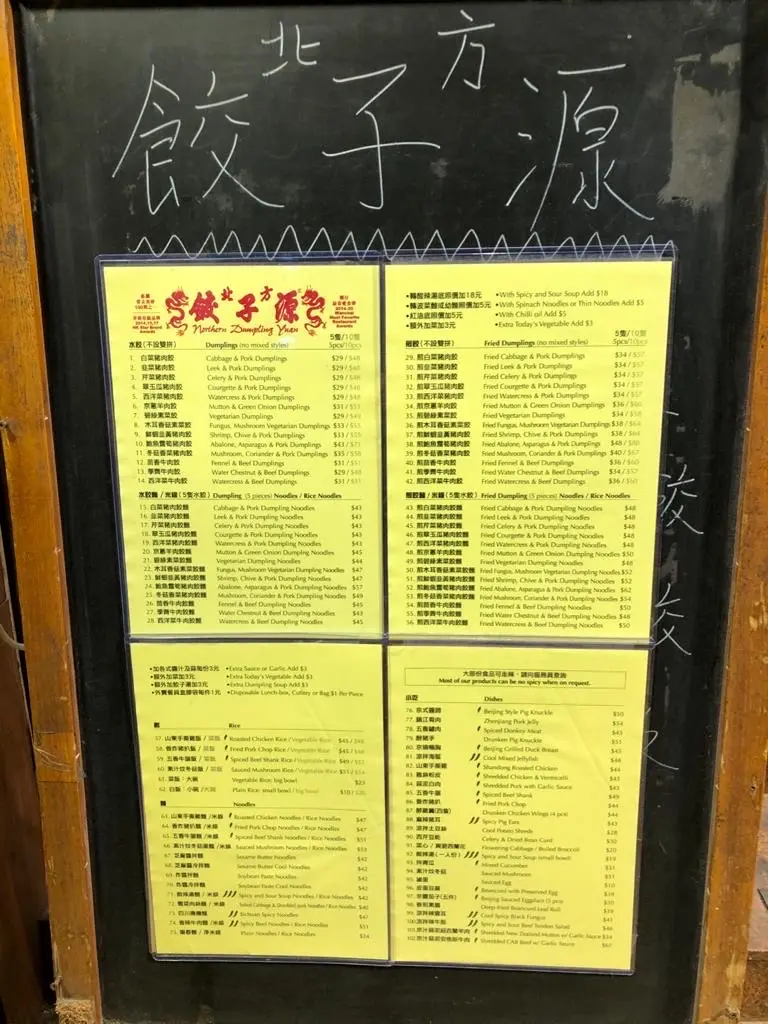 北方
餃子源
北方
餃子源
Northern Dumpling Yuan
5隻/10隻
水餃(不設雙拼) Dumplings (no mixed styles) 5pcs/10pcs
1. 白菜豬肉餃 Cabbage & Pork Dumplings $29 / $48
2. 韭菜豬肉餃 Leek & Pork Dumplings $29 / $48
3. 芹菜豬肉餃 Celery & Pork Dumplings $29 / $48
4. 翠玉瓜豬肉餃 Courgette & Pork Dumplings $29 / $48
5. 西洋菜豬肉餃 Watercress & Pork Dumplings $29 / $48
6. 京蔥羊肉餃 Mutton & Green Onion Dumplings $31
7. 碧綠素菜餃 Vegetarian Dumplings $29
8. 木耳香菇素菜餃 Fungus, Mushroom Vegetarian Dumplings $33
9. 鮮蝦韮黃豬肉餃 Shrimp, Chive & Pork Dumplings $33
10. 鮑魚露筍豬肉餃 Abalone, Asparagus & Pork Dumplings $43
11. 冬菇香菜豬肉餃 Mushroom, Coriander & Pork Dumplings $35
12. 茴香牛肉餃 Fennel & Beef Dumplings $31
13. 馬蹄牛肉餃 Water Chestnut & Beef Dumplings $29
14. 西洋菜牛肉餃 Watercress & Beef Dumplings $31
水餃麵 / 米線 (5隻水餃) Dumpling (5 pieces) Noodles / Rice Noodles
15. 白菜豬肉餃麵 Cabbage & Pork Dumpling Noodles $43
16. 韭菜豬肉餃麵 Leek & Pork Dumpling Noodles $43
17. 芹菜豬肉餃麵 Celery & Pork Dumpling Noodles $43
18. 翠玉瓜豬肉餃麵 Courgette & Pork Dumpling Noodles $43
19. 西洋菜豬肉餃麵 Watercress & Pork Dumpling Noodles $43
20. 京蔥羊肉餃麵 Mutton & Green Onion Dumpling Noodles $45
21. 碧綠素菜餃麵 Vegetarian Dumpling Noodles $44
22. 木耳香菇素菜餃麵 Fungus, Mushroom Vegetarian Dumpling Noodles $47
23. 鮮蝦韮黃豬肉餃麵 Shrimp, Chive & Pork Dumpling Noodles $47
24. 鮑魚露筍豬肉餃麵 Abalone, Asparagus & Pork Dumpling Noodles $57
25. 冬菇香菜豬肉餃麵 Mushroom, Coriander & Pork Dumpling Noodles $49
26. 茴香牛肉餃麵 Fennel & Beef Dumpling Noodles $45
27. 馬蹄牛肉餃麵 Water Chestnut & Beef Dumpling Noodles $43
28. 西洋菜牛肉餃麵 Watercress & Beef Dumpling Noodles $45
•轉酸辣湯底照價加18元 •With Spicy and Sour Soup Add $18
•轉菠菜麵或幼麵照價加5元 •With Spinach Noodles or Thin Noodles Add $5
•紅油湯底照價加5元 •With Chilli oil Add $5
•額外加菜加3元 •Extra Today's Vegetable Add $3
5隻/10隻
煎餃(不設雙拼) Fried Dumplings (no mixed styles) 5pcs/10pcs
29. 煎白菜豬肉餃 Fried Cabbage & Pork Dumplings $34 / $57
30. 煎韭菜豬肉餃 Fried Leek & Pork Dumplings $34 / $57
31. 煎芹菜豬肉餃 Fried Celery & Pork Dumplings $34 / $57
32. 煎翠玉瓜豬肉餃 Fried Courgette & Pork Dumplings $34 / $57
33. 煎西洋菜豬肉餃 Fried Watercress & Pork Dumplings $34 / $57
34. 煎京蔥羊肉餃 Fried Mutton & Green Onion Dumplings $36 / $60
35. 煎碧綠素菜餃 Fried Vegetarian Dumplings $34 / $58
36. 煎木耳香菇素菜餃 Fried Fungus, Mushroom Vegetarian Dumplings $38 / $64
37. 煎鮮蝦韮黃豬肉餃 Fried Shrimp, Chive & Pork Dumplings $38 / $64
38. 煎鮑魚露筍豬肉餃 Fried Abalone, Asparagus & Pork Dumplings $48 / $80
39. 煎冬菇香菜豬肉餃 Fried Mushroom, Coriander & Pork Dumplings $40 / $67
40. 煎茴香牛肉餃 Fried Fennel & Beef Dumplings $36 / $60
41. 煎馬蹄牛肉餃 Fried Water Chestnut & Beef Dumplings $34 / $57
42. 煎西洋菜牛肉餃 Fried Watercress & Beef Dumplings $36 / $60
煎餃麵 / 米線 (5隻煎餃) Fried Dumpling (5 pieces) Noodles / Rice Noodles
43. 煎白菜豬肉餃麵 Fried Cabbage & Pork Dumpling Noodles $48
44. 煎韭菜豬肉餃麵 Fried Leek & Pork Dumpling Noodles $48
45. 煎芹菜豬肉餃麵 Fried Celery & Pork Dumpling Noodles $48
46. 煎翠玉瓜豬肉餃麵 Fried Courgette & Pork Dumpling Noodles $48
47. 煎西洋菜豬肉餃麵 Fried Watercress & Pork Dumpling Noodles $48
48. 煎京蔥羊肉餃麵 Fried Mutton & Green Onion Dumpling Noodles $50
49. 煎碧綠素菜餃麵 Fried Vegetarian Dumpling Noodles $48
50. 煎木耳香菇素菜餃麵 Fried Fungus, Mushroom Vegetarian Dumpling Noodles $52
51. 煎鮮蝦韮黃豬肉餃麵 Fried Shrimp, Chive & Pork Dumpling Noodles $52
52. 煎鮑魚露筍豬肉餃麵 Fried Abalone, Asparagus & Pork Dumpling Noodles $62
53. 煎冬菇香菜豬肉餃麵 Fried Mushroom, Coriander & Pork Dumpling Noodles $54
54. 煎茴香牛肉餃麵 Fried Fennel & Beef Dumpling Noodles $50
55. 煎馬蹄牛肉餃麵 Fried Water Chestnut & Beef Dumpling Noodles $48
56. 煎西洋菜牛肉餃麵 Fried Watercress & Beef Dumpling Noodles $50
•加各式醬汁及蒜每份3元 •Extra Sauce or Garlic Add $3
•額外加菜加3元 •Extra Today's Vegetable Add $3
•額外加餃子湯加3元 •Extra Dumpling Soup Add $3
•外賣餐具盒膠袋每件1元 •Disposable Lunch-box, Cutlery or Bag $1 Per Piece
飯 Rice
57. 山東手撕雞飯 / 菜飯 Roasted Chicken Rice / Vegetable Rice $45 / $48
58. 香炸豬扒飯 / 菜飯 Fried Pork Chop Rice / Vegetable Rice $45 / $48
59. 五香牛𦟌飯 / 菜飯 Spiced Beef Shank Rice / Vegetable Rice $49
60. 素汁炆冬菇飯 / 菜飯 Sauteed Mushroom Rice / Vegetable Rice $51
61. 菜飯：大碗 Vegetable Rice: big bowl $23
62. 白飯：小碗 / 大碗 Plain Rice: small bowl / big bowl $10
麵 Noodles
63. 山東手撕雞麵 / 米線 Roasted Chicken Noodles / Rice Noodles $47
64. 香炸豬扒麵 / 米線 Fried Pork Chop Noodles / Rice Noodles $47
65. 五香牛𦟌麵 / 米線 Spiced Beef Shank Noodles / Rice Noodles $51
66. 素汁炆冬菇湯麵 / 米線 Sauteed Mushroom Noodles / Rice Noodles $53
67. 芝麻醬拌麵 Sesame Butter Noodles $42
68. 芝麻醬冷拌麵 Sesame Butter Cool Noodles $42
69. 炸醬拌麵 Soybean Paste Noodles $42
70. 炸醬冷拌麵 Soybean Paste Cool Noodles $42
71. 酸辣湯麵 / 米線 Spicy and Sour Soup Noodles / Rice Noodles $42
72. 雪菜肉絲麵 / 米線 Salted Cabbage & Shredded pork Noodles / Rice Noodles
73. 四川擔擔麵 Sichuan Spicy Noodles $47
74. 香辣牛肉麵 / 米線 Spicy Beef Noodles / Rice Noodles $51
75. 陽春麵 / 淨米線 Plain Noodles / Rice Noodles $24
大部份食品可走辣，請向服務員查詢
Most of our products can be no spicy when on request.
小吃 Dishes
76. 京式醬蹄 Beijing Style Pig Knuckle $50
77. 鎮江肴肉 Zhenjiang Pork Jelly $54
78. Spiced Donkey Meat $45
79. 醉豬手 Drunken Pig Knuckle $51
80. 京燒鴨胸 Beijing Grilled Duck Breast $45
81. 涼拌海蜇 Cool Mixed Jellyfish $44
82. 山東手撕雞 Shandong Roasted Chicken $44
83. 雞絲粉皮 Shredded Chicken & Vermicelli $45
84. 蒜泥白肉 Shredded Pork with Garlic Sauce $43
85. 五香牛𦟌 Spiced Beef Shank $49
86. 香炸豬扒 Fried Pork Chop $44
87. Drunken Chicken Wings (4 pcs) $44
88. 麻辣豬耳 Spicy Pig Ears $44
89. 涼拌土豆絲 Cool Potato Shreds $28
90. 西芹豆乾 Celery & Dried Bean Curd $30
91. 菜心 / 白灼西蘭花 Flowering Cabbage / Boiled Broccoli $20
92. 酸辣湯 (一人份) Spicy and Sour Soup (small bowl) $19
93. 拌青瓜 Mixed Cucumber $31
94. 素汁炆冬菇 Sauteed Mushroom $31
95. 滷蛋 Sauced Egg $10
96. 皮蛋豆腐 Beancurd with Preserved Egg $18
97. 京醬茄子(五件) Beijing Sauced Eggplant (5 pcs) $30
98. Deep-fried Beancurd Leaf Roll $39
99. Cool Spicy Black Fungus $41
100. Spicy and Sour Beef Tendon Salad $46
101. Shredded New Zealand Mutton w/ Garlic Sauce $54
102. Shredded CAB Beef w/ Garlic Sauce $67